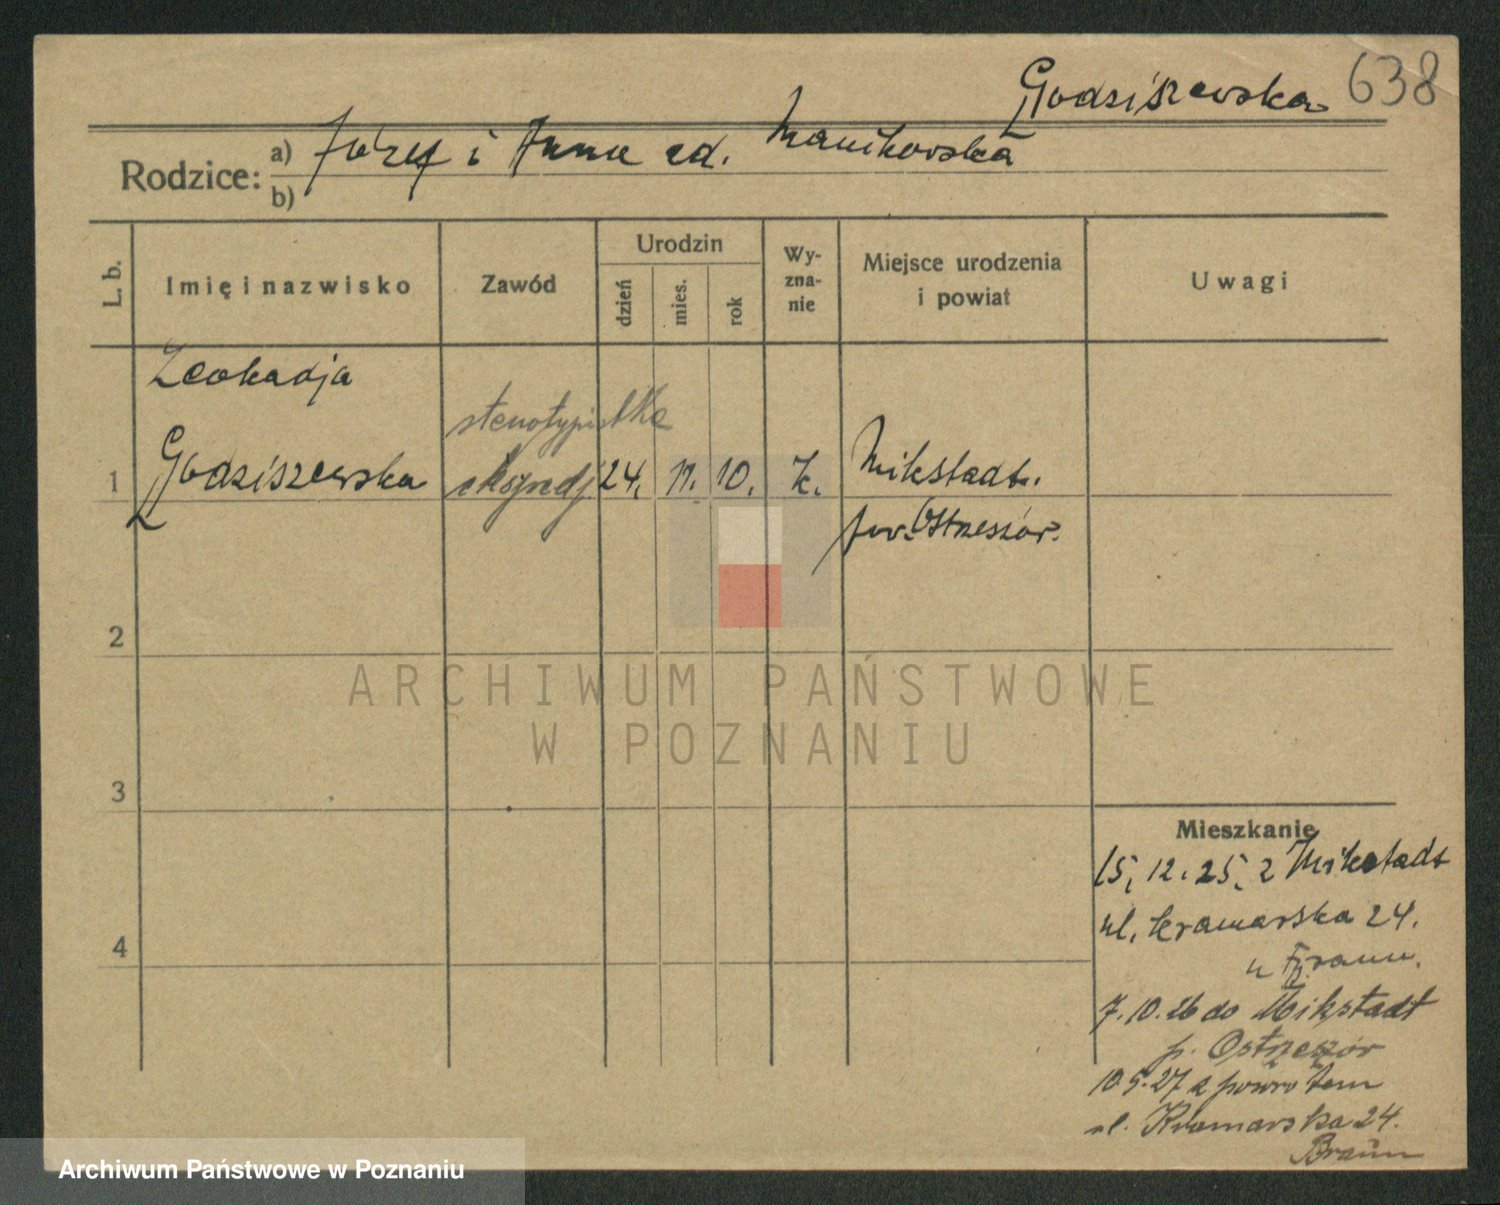 Godziszewska 638
Rodzice: a) Józef i Anna zd. Manikowska
b)
L. b.
Imię i nazwisko
Zawód
Urodzin
dzień
mies.
rok
Wy-
zna-
nie
Miejsce urodzenia
i powiat
Uwagi
Leokadja
stenotypistka
1 Godziszewska ekspedj 24. 11. 10. k. Mikstadt.
pow. Ostrzeszów.
2
3
4
Mieszkanie
15. 12. 25. z Mikstadt
ul. Kramarska 24.
u Braun.
7. 10. 26 do Mikstadt
p. Ostrzeszów
10.5.27 z powrotem
ul. Kramarska 24.
Braun
ARCHIWUM PAŃSTWOWE
W POZNANIU
Archiwum Państwowe w Poznaniu